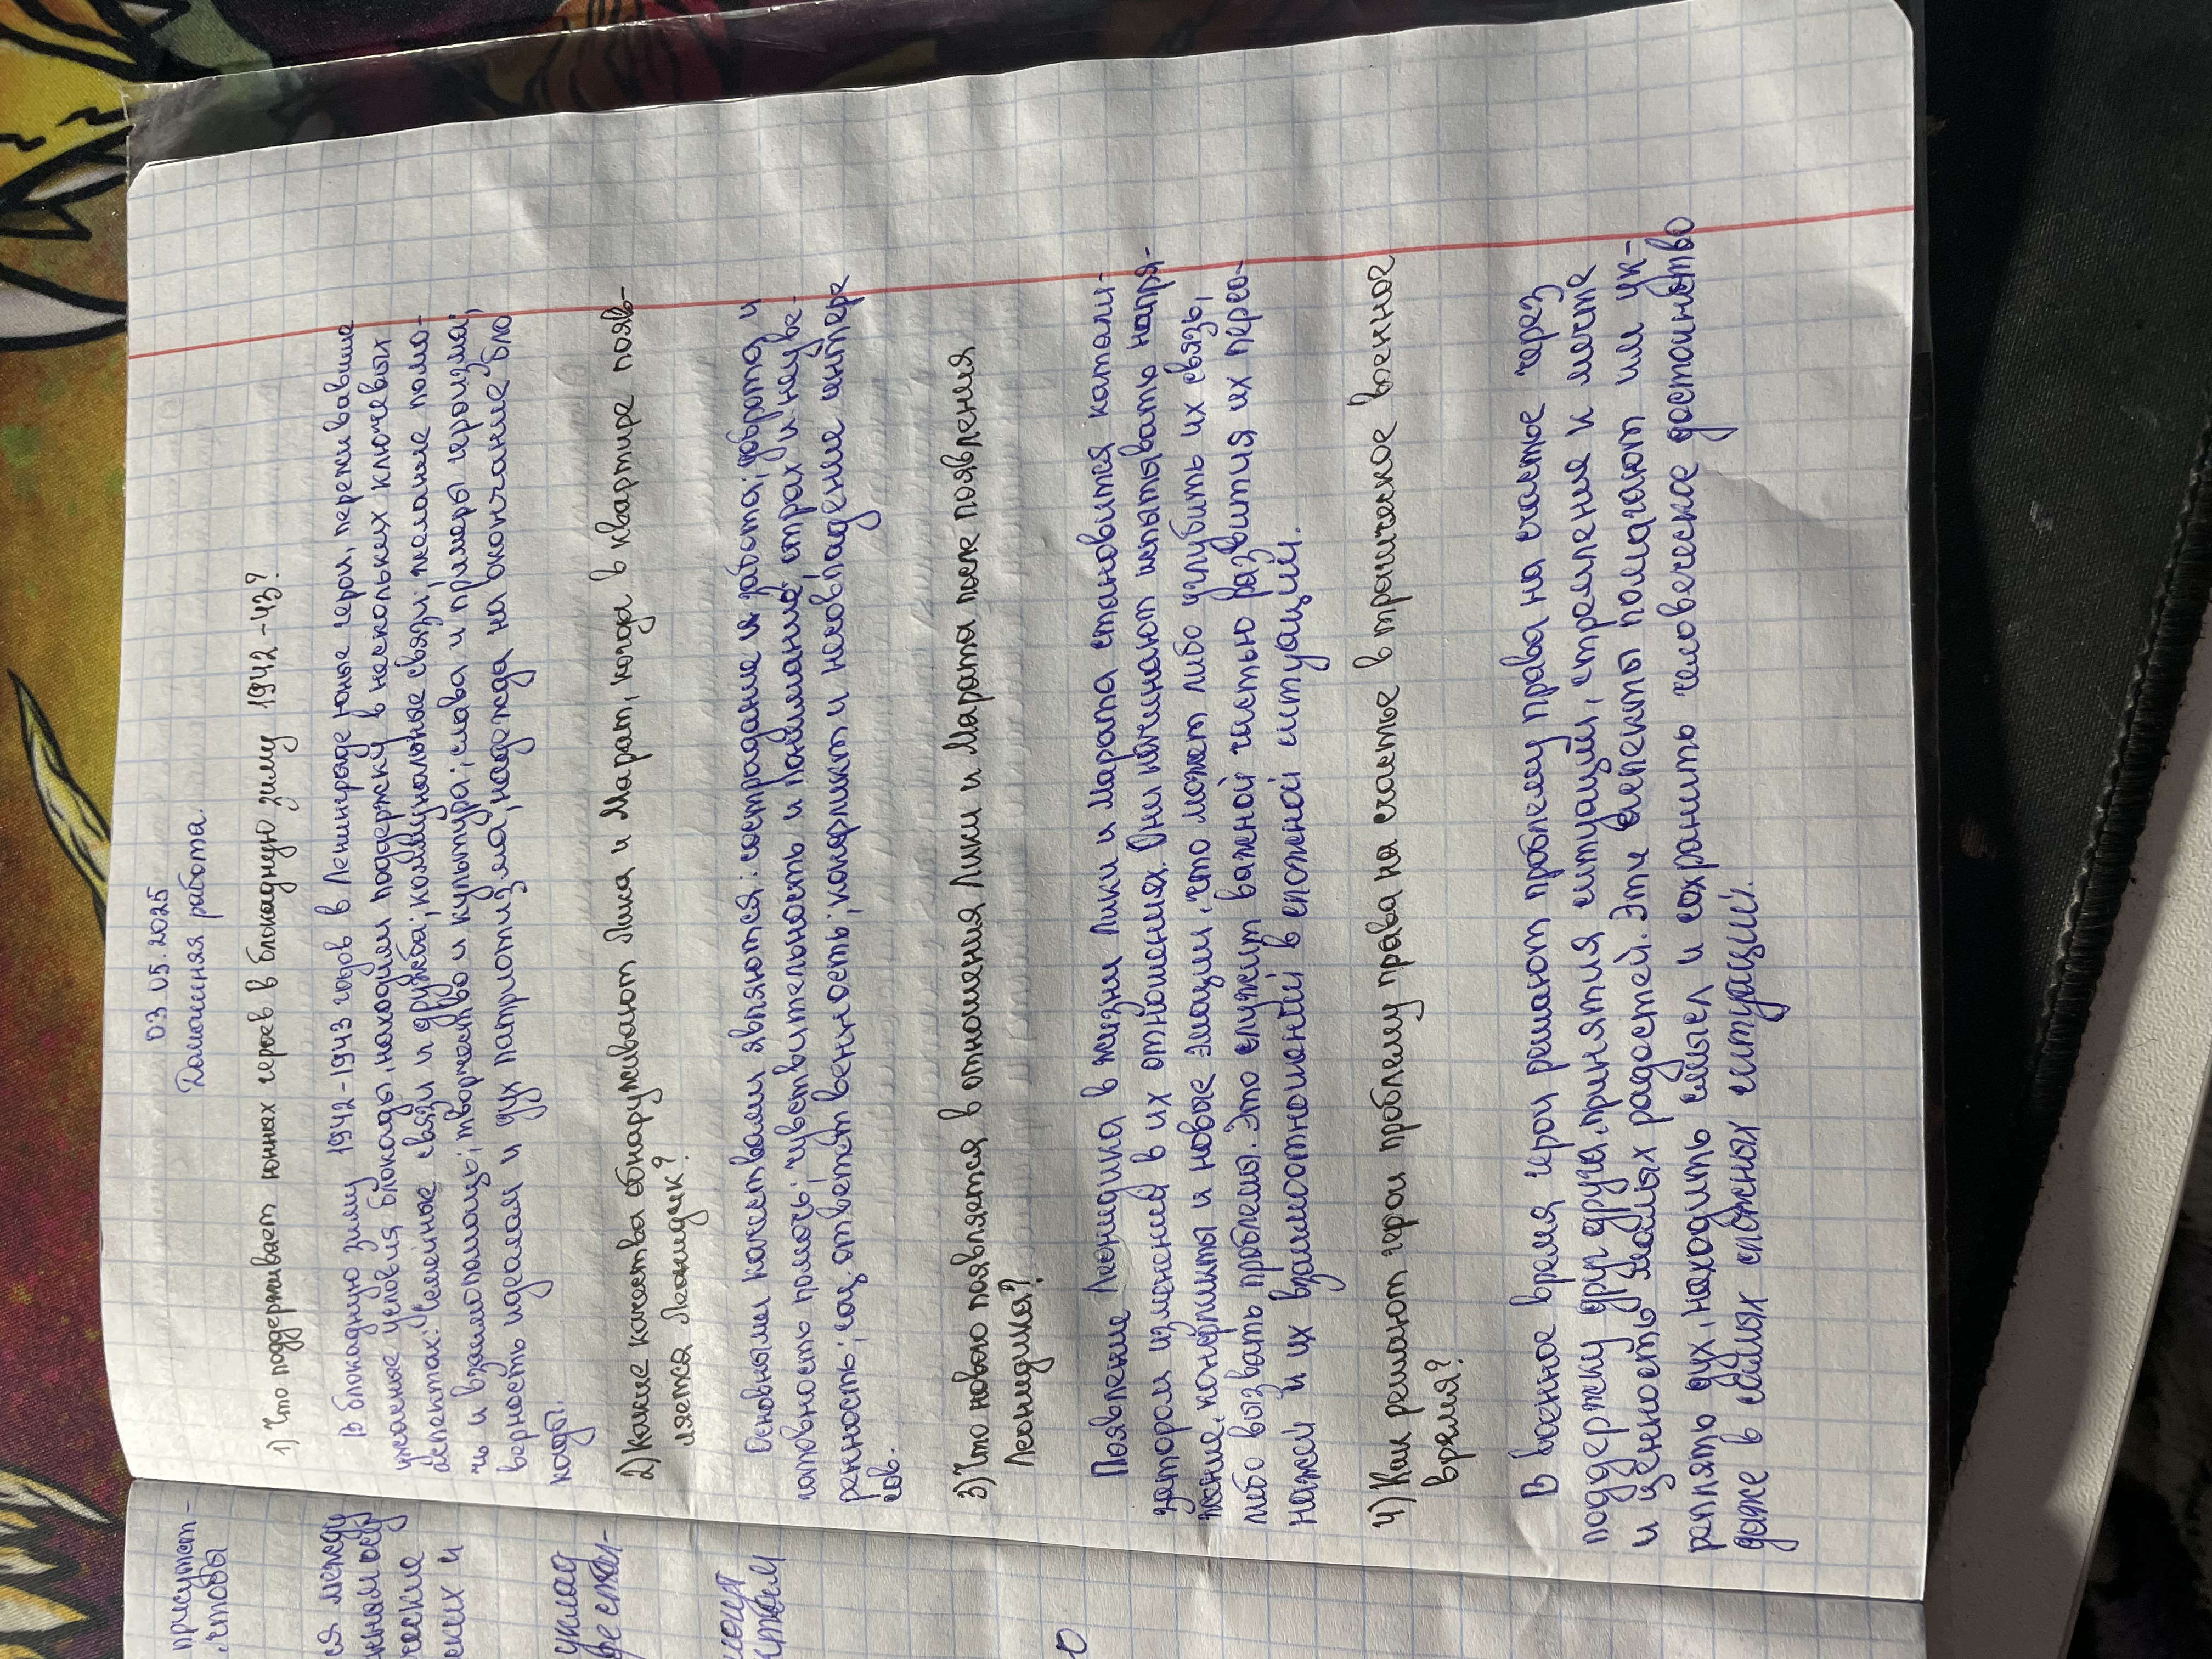 03.05.2025
Домашняя работа.
1) Что поддерживает юных героев в блокадную зиму 1942-43?
В блокадную зиму 1942-1943 годов в Ленинграде юные герои, переживавшие
ужасные условия блокады, находили поддержку в нескольких ключевых
аспектах: Семейные связи и дружба; коммунальные связи; желание помо-
чь и взаимопомощь; творчество и культура; слава и примеры героизма;
верность идеалам и дух патриотизма; надежда на окончание бло
кады.
2) Какие качества обнаруживают Лика и Марат, когда в квартире появ-
ляется Леонидик?
Основными качествами являются: сострадание и забота; доброта и
готовность помочь; чувствительность и понимание; страх и неуве-
ренность; соц. ответственность; конфликт и несовпадение интере
сов.
3) Что нового появляется в отношения Лики и Марата после появления
Леонидика?
Появление Леонидика в жизни Лики и Марата становится катали-
затором изменений в их отношениях. Они начинают испытывать напря-
жение, конфликты и новые эмоции, что может либо углубить их связь,
либо вызвать проблемы. Это служит важной частью развития их персо-
нажей и их взаимоотношений в сложной ситуаций.
4) Как решают герои проблему права на счастье в трагическое военное
время?
В военное время герои решают проблему права на счастье через
поддержку друг друга, принятия ситуации, стремление и мечте
и ценность малых радостей. Эти аспекты помагают им ук-
реплять дух, находить смысл и сохранить человеческое достоинство
даже в самых сложных ситуации.
присутст-
, чтобы
ся между
ческие
ских и
уклад